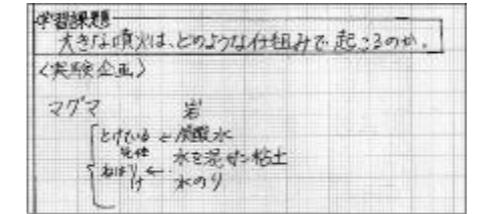 学習課題
大きな噴火は、どのような仕組みで起こるのか。
〈実験企画〉
マグマ 岩
とけている ← 炭酸水
気体 水を混ぜた粘土
ねばりけ ← 水のり